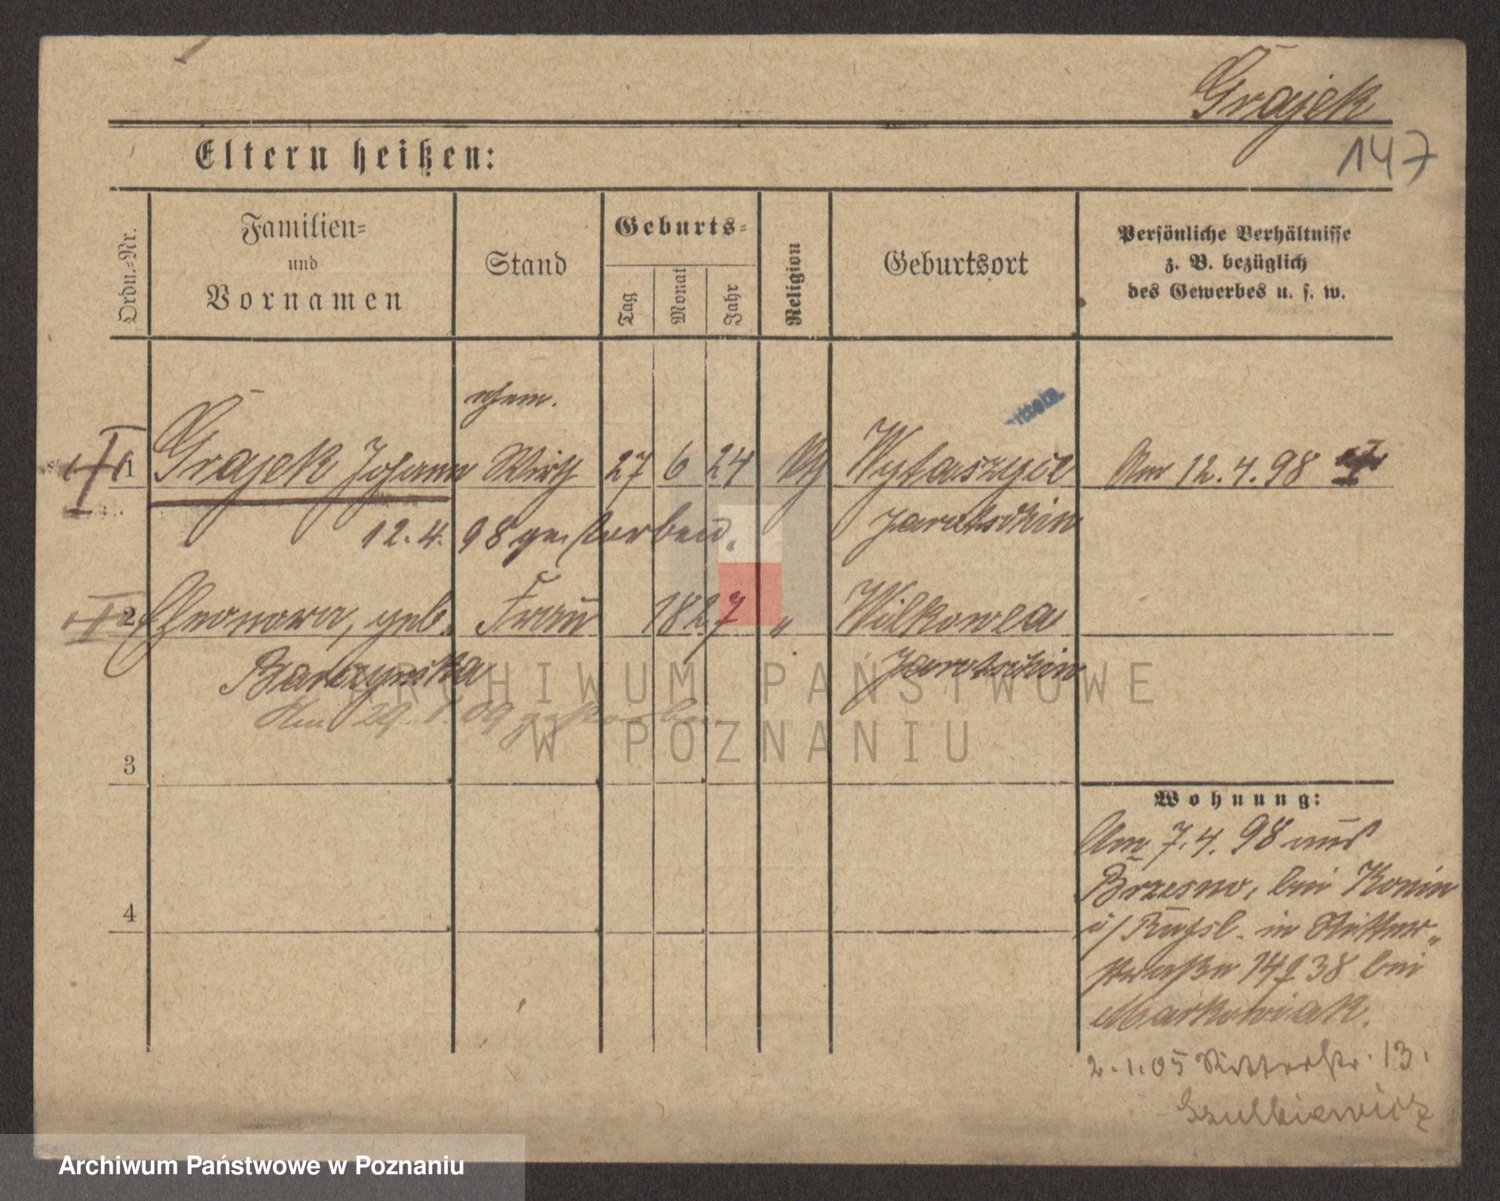 Grajek
147
Eltern heißen:
Ordn.-Nr.
Familien-
und
Vornamen
Stand
Geburts-
Tag
Monat
Jahr
Religion
Geburtsort
Persönliche Verhältnisse
z. B. bezüglich
des Gewerbes u. s. w.
ehem.
1 Grajek Johann Wirth 27 6 24 kth Wytaszyce Am 12.4.98
12.4.98 gestorben. Jarotschin
2 Eleonora, geb. Frau 1827 " Wilkowia
Jarotschin
Am 29. 09 gestorben
3
4
Wohnung:
Am 7.4.98 aus
Brzesno, bei Konin
i/ Rußl. in Ritter-
straße 14 38 bei
Markowiak.
2.1.05 Ritterstr. 13.
Szulkiewicz
ARCHIWUM PAŃSTWOWE
W POZNANIU
Archiwum Państwowe w Poznaniu